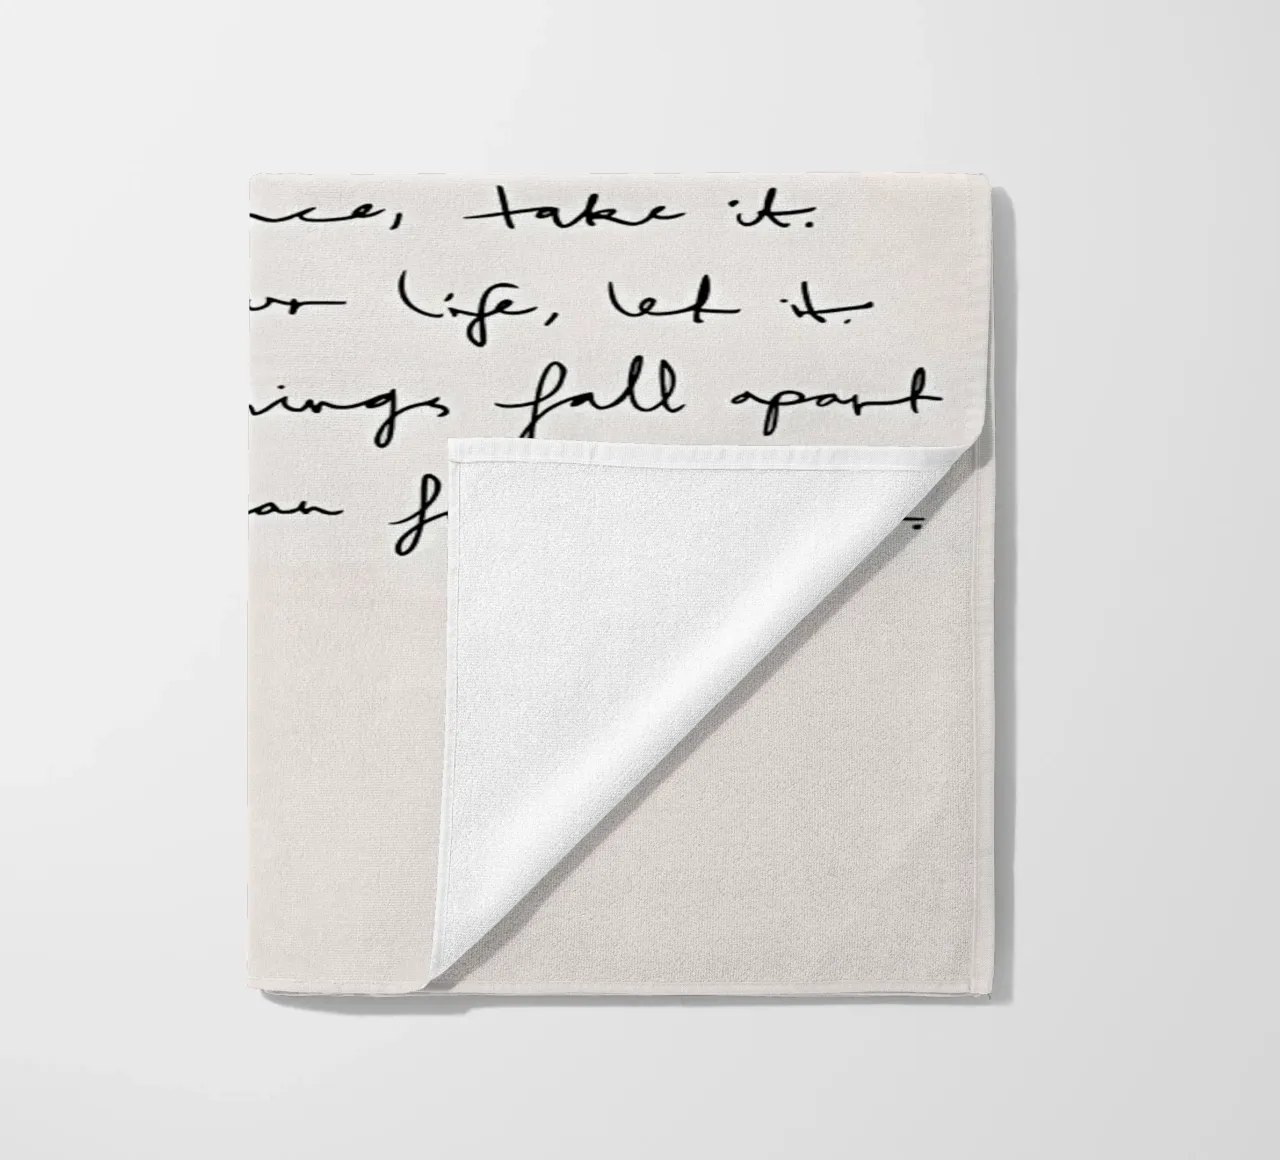 nce, take it.
ur life, let it.
hings fall apart
an f